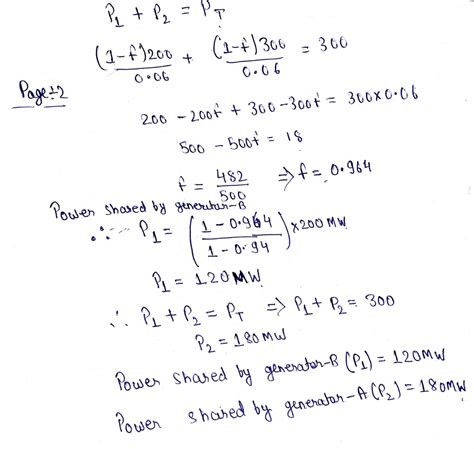 P₁ + P₂ = P_T
(1-f)200/0.06 + (1-f)300/0.06 = 300
Page:-2
200 - 200f + 300 - 300f = 300×0.06
500 - 500f = 18
f = 482/500 ⇒ f = 0.964
Power shared by generator-B
∴ P₁ = ((1-0.964)/(1-0.94)) × 200 MW
P₁ = 120MW
∴ P₁ + P₂ = P_T ⇒ P₁ + P₂ = 300
P₂ = 180MW
Power shared by generator-B (P₁) = 120MW
Power shared by generator-A (P₂) = 180MW